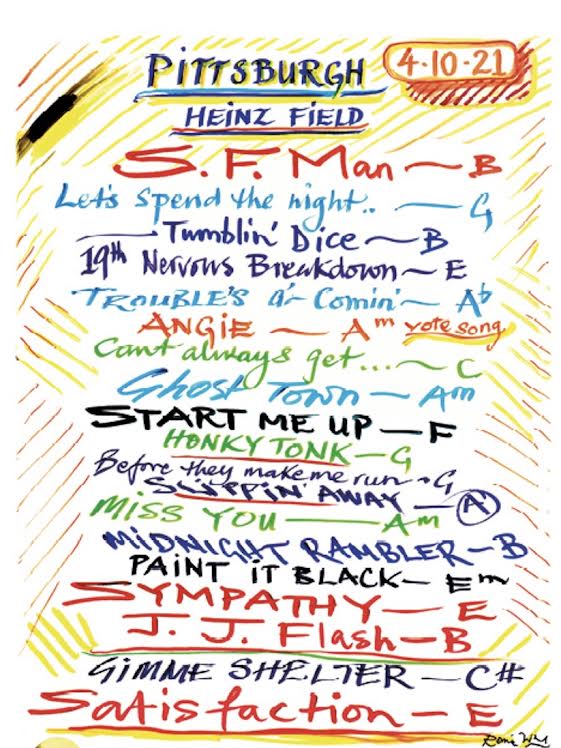 PITTSBURGH
4·10·21
HEINZ FIELD
S.F. Man — B
Let's Spend the night.. — G
Tumblin' Dice — B
19th Nervous Breakdown — E
TROUBLE'S a'- Comin' — Ab
ANGIE — Am vote song
Can't always get... — C
Ghost Town — Am
START ME UP — F
HONKY TONK — G
Before they make me run - G
SLIPPIN' AWAY — A
MISS YOU — Am
MIDNIGHT RAMBLER — B
PAINT IT BLACK — Em
SYMPATHY — E
J. J. Flash — B
GIMME SHELTER — C#
Satisfaction — E